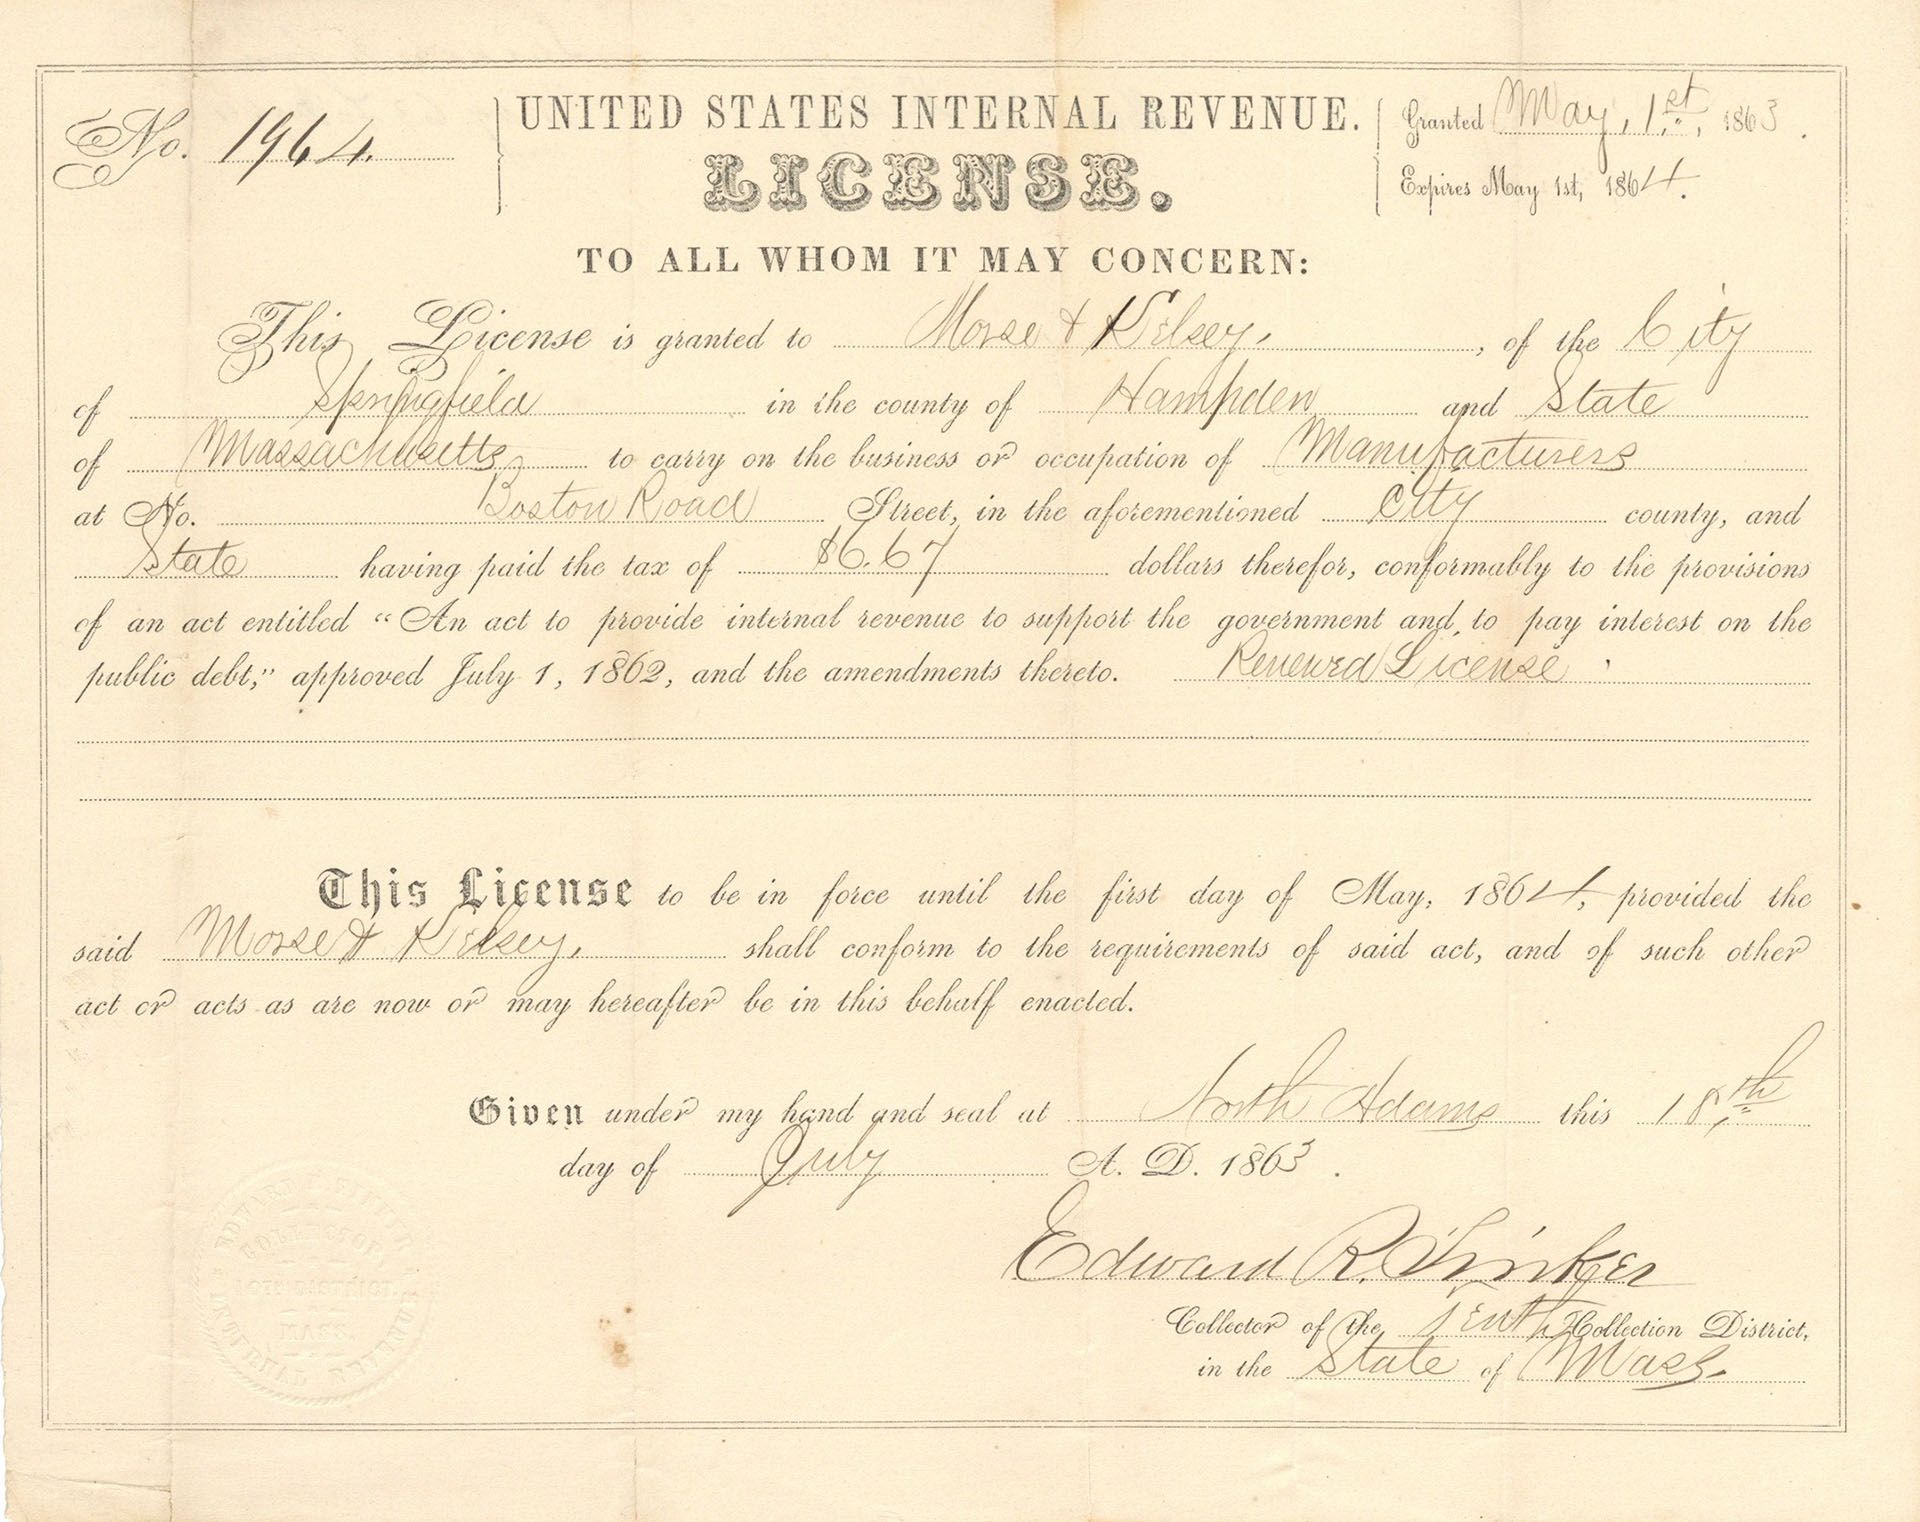 No. 1964.
UNITED STATES INTERNAL REVENUE.
LICENSE.
Granted May, 1st, 1863.
Expires May 1st, 1864.
TO ALL WHOM IT MAY CONCERN:
This License is granted to Morse & Kelsey, of the City
of Springfield in the county of Hampden and State
of Massachusetts to carry on the business or occupation of Manufacturers
at No. Boston Road Street, in the aforementioned City county, and
State having paid the tax of $6.67 dollars therefor, conformably to the provisions
of an act entitled "An act to provide internal revenue to support the government and, to pay interest on the
public debt," approved July 1, 1862, and the amendments thereto. Renewed License.
This License to be in force until the first day of May, 1864, provided the
said Morse & Kelsey, shall conform to the requirements of said act, and of such other
act or acts as are now or may hereafter be in this behalf enacted.
Given under my hand and seal at North Adams this 18th
day of July A. D. 1863.
Edward R. Tinker
Collector of the Tenth Collection District,
in the State of Mass.
EDWARD R. TINKER
COLLECTOR
10TH DISTRICT
MASS.
INTERNAL REVENUE